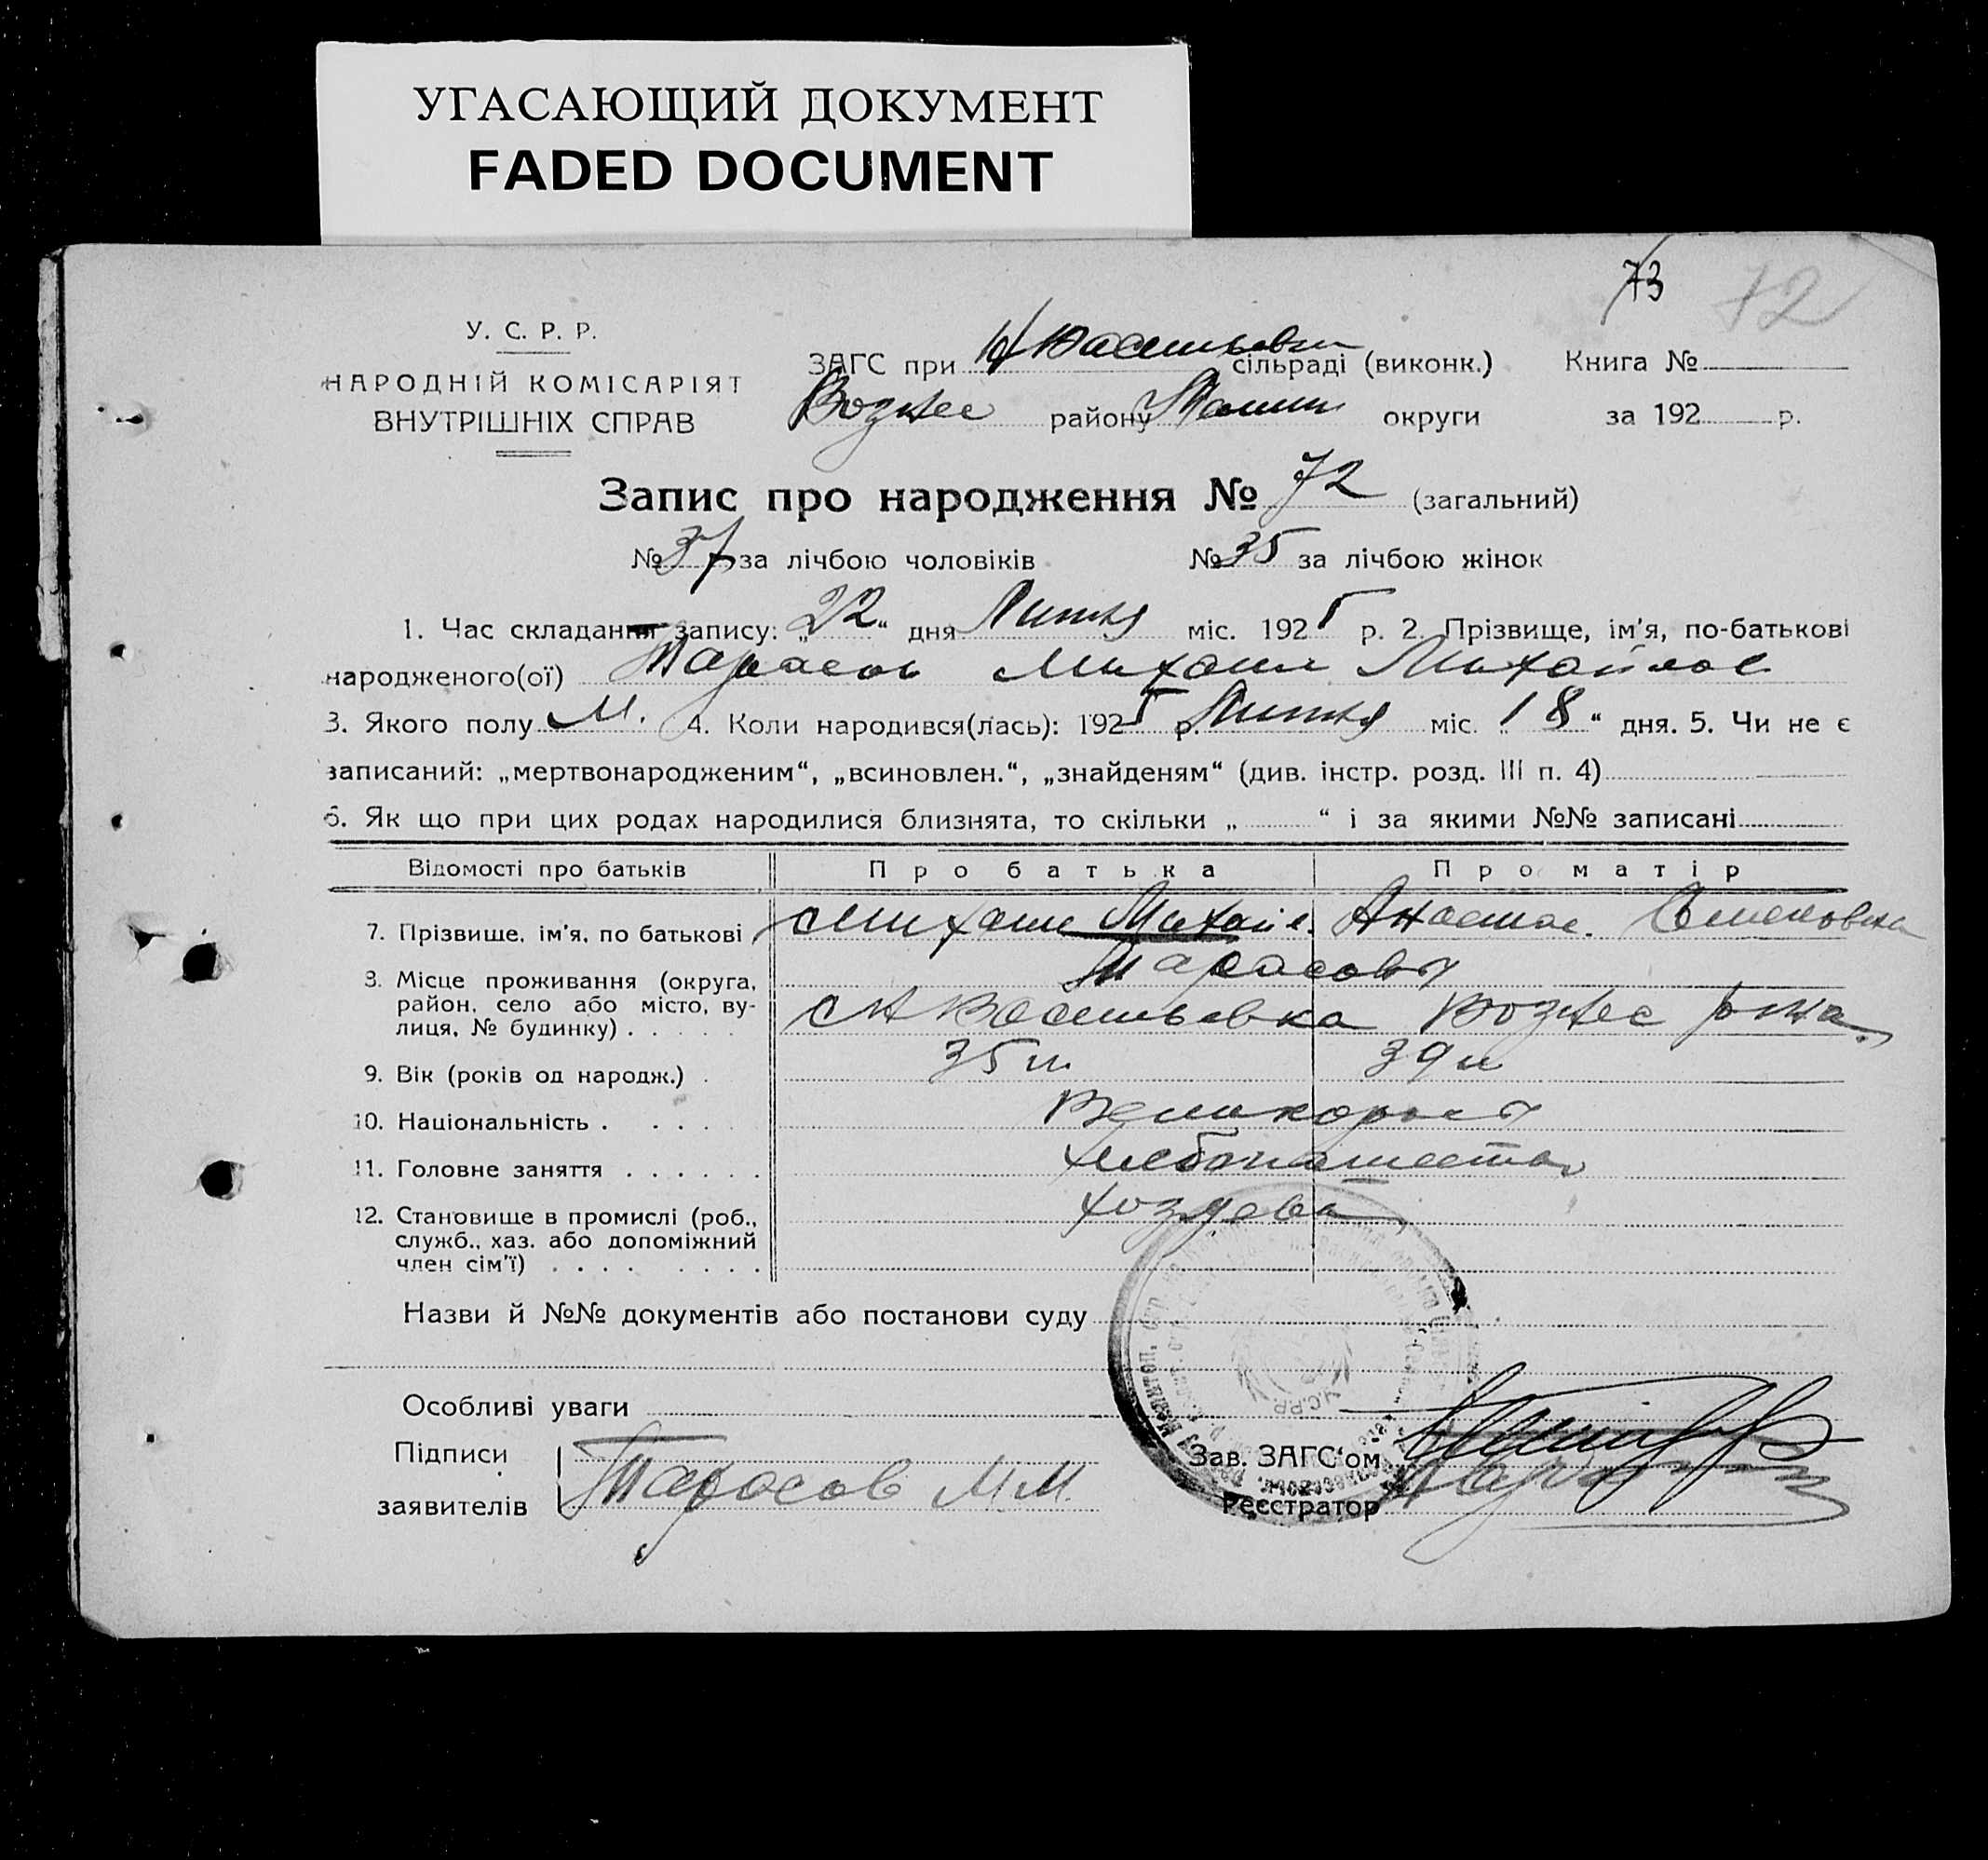 УГАСАЮЩИЙ ДОКУМЕНТ
FADED DOCUMENT
73 72
У. С. Р. Р.
НАРОДНІЙ КОМІСАРІЯТ
ВНУТРІШНІХ СПРАВ
ЗАГС при Н Васильевка сільраді (виконк.) Книга №
Вознес району округи за 192 р.
Запис про народження № 72 (загальний)
№ 37 за лічбою чоловіків № 35 за лічбою жінок
1. Час складання запису: „22“ дня Лютня міс. 1925 р. 2. Прізвище, ім'я, по-батькові
народженого(ої) Тарасов Михаил Михайлов
3. Якого полу М. 4. Коли народився(лась): 1925 р. Лютня міс. „18“ дня. 5. Чи не є
записаний: „мертвонародженим“, „всиновлен.“, „знайденям“ (див. інстр. розд. III п. 4)
6. Як що при цих родах народилися близнята, то скільки „ “ і за якими №№ записані
Відомості про батьків Про батька Про матір
7. Прізвище, ім'я, по батькові Михаил Михайл. Анастас. Семеновна
Тарасовы
8. Місце проживання (округа,
район, село або місто, ву-
лиця, № будинку) . . . . . с Н Васильевка Вознес р-на
9. Вік (років од народж.) . 35 л. 39 л
10. Національність . . . . . Великороссы
11. Головне заняття . . . . . . хлебопашество
12. Становище в промислі (роб.,
служб., хаз. або допоміжний
член сім'ї) . . . . . . . .
Назви й №№ документів або постанови суду
У.С.Р.Р.
Особливі уваги
Підписи
заявителів Тарасов М.М.
Зав. ЗАГС'ом
Реєстратор